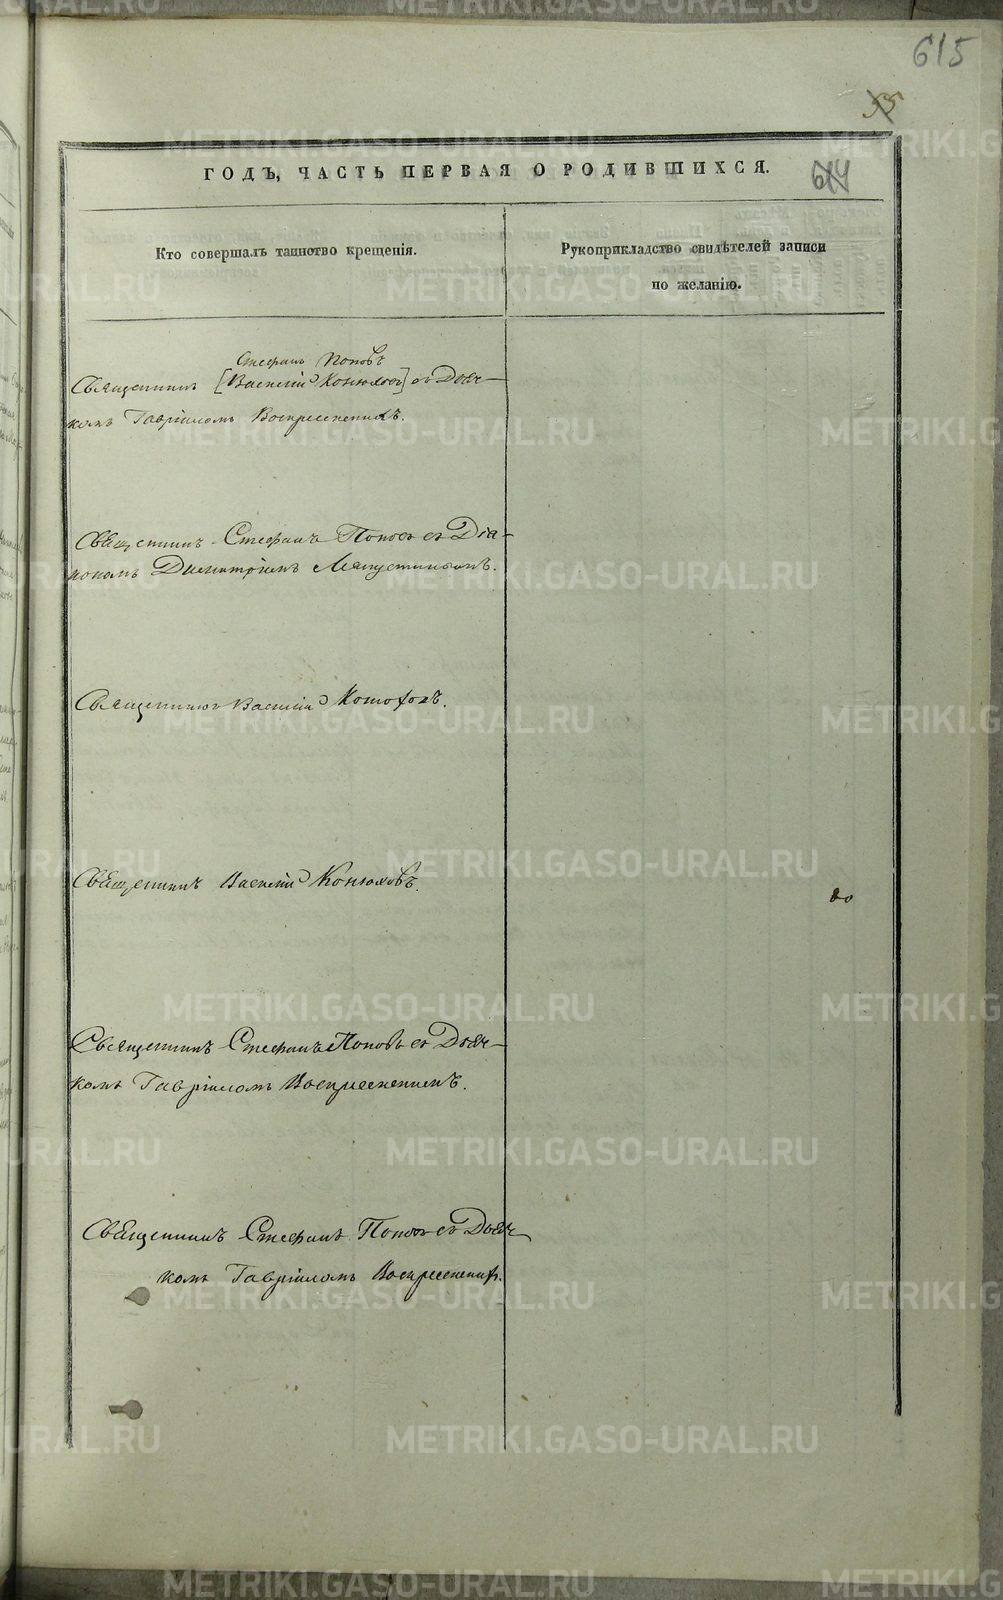 615
55
ГОДЪ, ЧАСТЬ ПЕРВАЯ О РОДИВШИХСЯ.
614
Кто совершалъ таинство крещенія.
Рукоприкладство свидѣтелей записи
по желанію.
Стефанъ Поповъ
Священникъ [Василій Конюховъ] съ Дьяч-
комъ Гавріиломъ Воскресенскимъ.
Священникъ Стефанъ Поповъ съ Діа-
кономъ Димитріемъ
Священникъ Василій Конюховъ.
Священникъ Василій Конюховъ.
Священникъ Стефанъ Поповъ съ Дьяч-
комъ Гавріиломъ Воскресенскимъ.
Священникъ Стефанъ Поповъ съ Дьяч-
комъ Гавріиломъ Воскресенскимъ.
METRIKI.GASO-URAL.RU